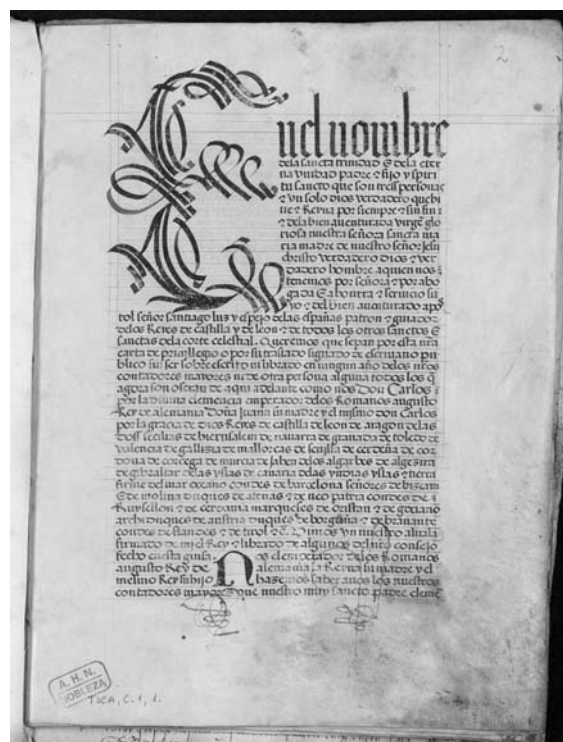 2
En el nombre
dela sancta trinidad E dela eter
na vnidad padre e fijo y spiri
tu sancto que son tress personas
e vn solo dios verdadero que bi
ue e Reyna por siempre e sin fin e
dela bien auenturada virgen glo
riosa nuestra señora sancta ma
ria madre de nuestro señor jesu
christo verdadero dios e ver
dadero hombre a quien nos
tenemos por señora e por abo
gada E a honrra e seruicio su
yo e del bien auenturado apos
tol señor santiago luz y espejo delas españas patron e guiador
delos Reyes de castilla y de leon e de todos los otros sanctos E
sanctas dela corte celestial. Queremos que sepan por esta nra
carta de priuillegio o por su traslado signado de escriuano pu
blico sin ser sobre escrito ni librado en ningun año delos nros
contadores mayores ni de otra persona alguna todos los q
agora son o seran de aqui adelante como nos Don Carlos
por la diuina clemencia emperador delos Romanos augusto
Rey de alemania Doña Juana su madre y el mismo don Carlos
por la gracia de dios Reyes de castilla de leon de aragon delas
doss secilias de hierusalem de nauarra de granada de toledo de
valencia de gallizia de mallorcas de seuilla de cerdeña de cor
doua de corcega de murcia de jahen delos algarbes de algezira
de gibraltar delas yslas de canaria delas yndias yslas e tierra
firme del mar oceano condes de barcelona señores de bizcaya
E de molina duques de atenas e de neo patria condes de
Ruysellon e de cerdania marqueses de oristan e de gociano
archiduques de austria duques de borgoña e de brauante
condes de flandes e de tirol e c. Vimos vn nuestro aluala
firmado de mi el Rey e librado de algunos del nro consejo
fecho en esta guisa. Nos el emperador delos Romanos
augusto Rey de alemania la Reyna su madre y el
mesmo Rey su hijo hazemos saber a uos los nuestros
contadores mayores que nuestro muy sancto padre cleme
A. H. N.
NOBLEZA
TOCA, C. 1, 1.